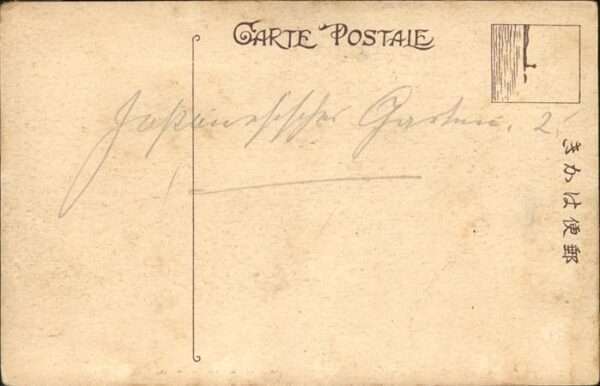 CARTE POSTALE
Japanesischer Garten. 2
郵便はかき